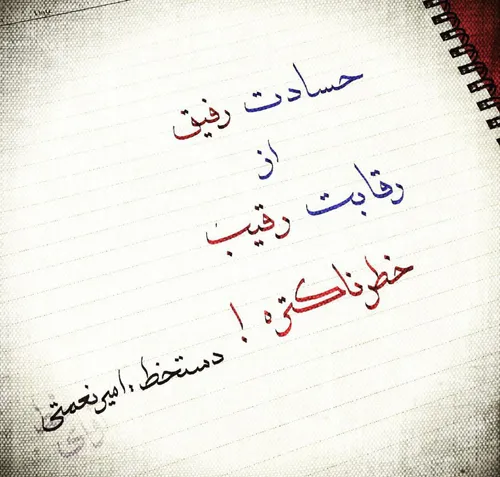 حسادت رفیق
از
رقابت رقیب
خطرناکتره !
دستخط : امیر نعمتی